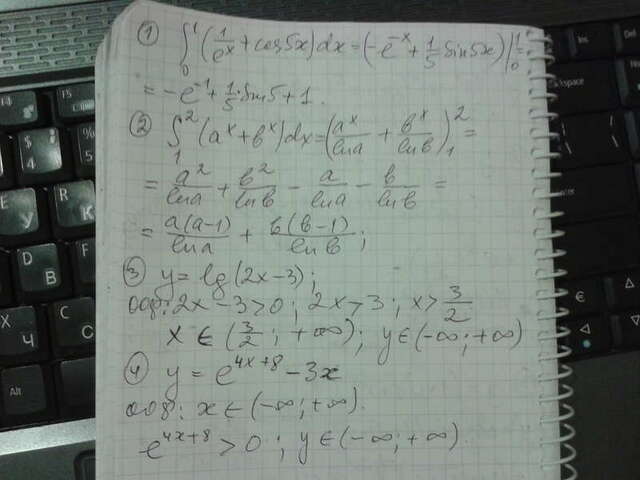 ① ∫₀¹ (1/eˣ + cos5x)dx = (-e⁻ˣ + 1/5 sin5x)|₀¹ =
= -e⁻¹ + 1/5 sin5 + 1.
② ∫₁² (aˣ + bˣ)dx = (aˣ/lna + bˣ/lnb)₁² =
= a²/lna + b²/lnb - a/lna - b/lnb =
= a(a-1)/lna + b(b-1)/lnb ;
③ y = lg(2x-3);
ООФ: 2x-3>0; 2x>3; x>3/2
x ∈ (3/2; +∞); y∈(-∞;+∞)
④ y = e⁴ˣ⁺⁸ - 3x
ООФ: x ∈ (-∞;+∞).
e⁴ˣ⁺⁸ > 0 ; y∈(-∞;+∞)
F4
F5
$
4
%
5
Е
У
R
К
D
В
F
А
X
Ч
C
С
Alt
Ins
Del
€